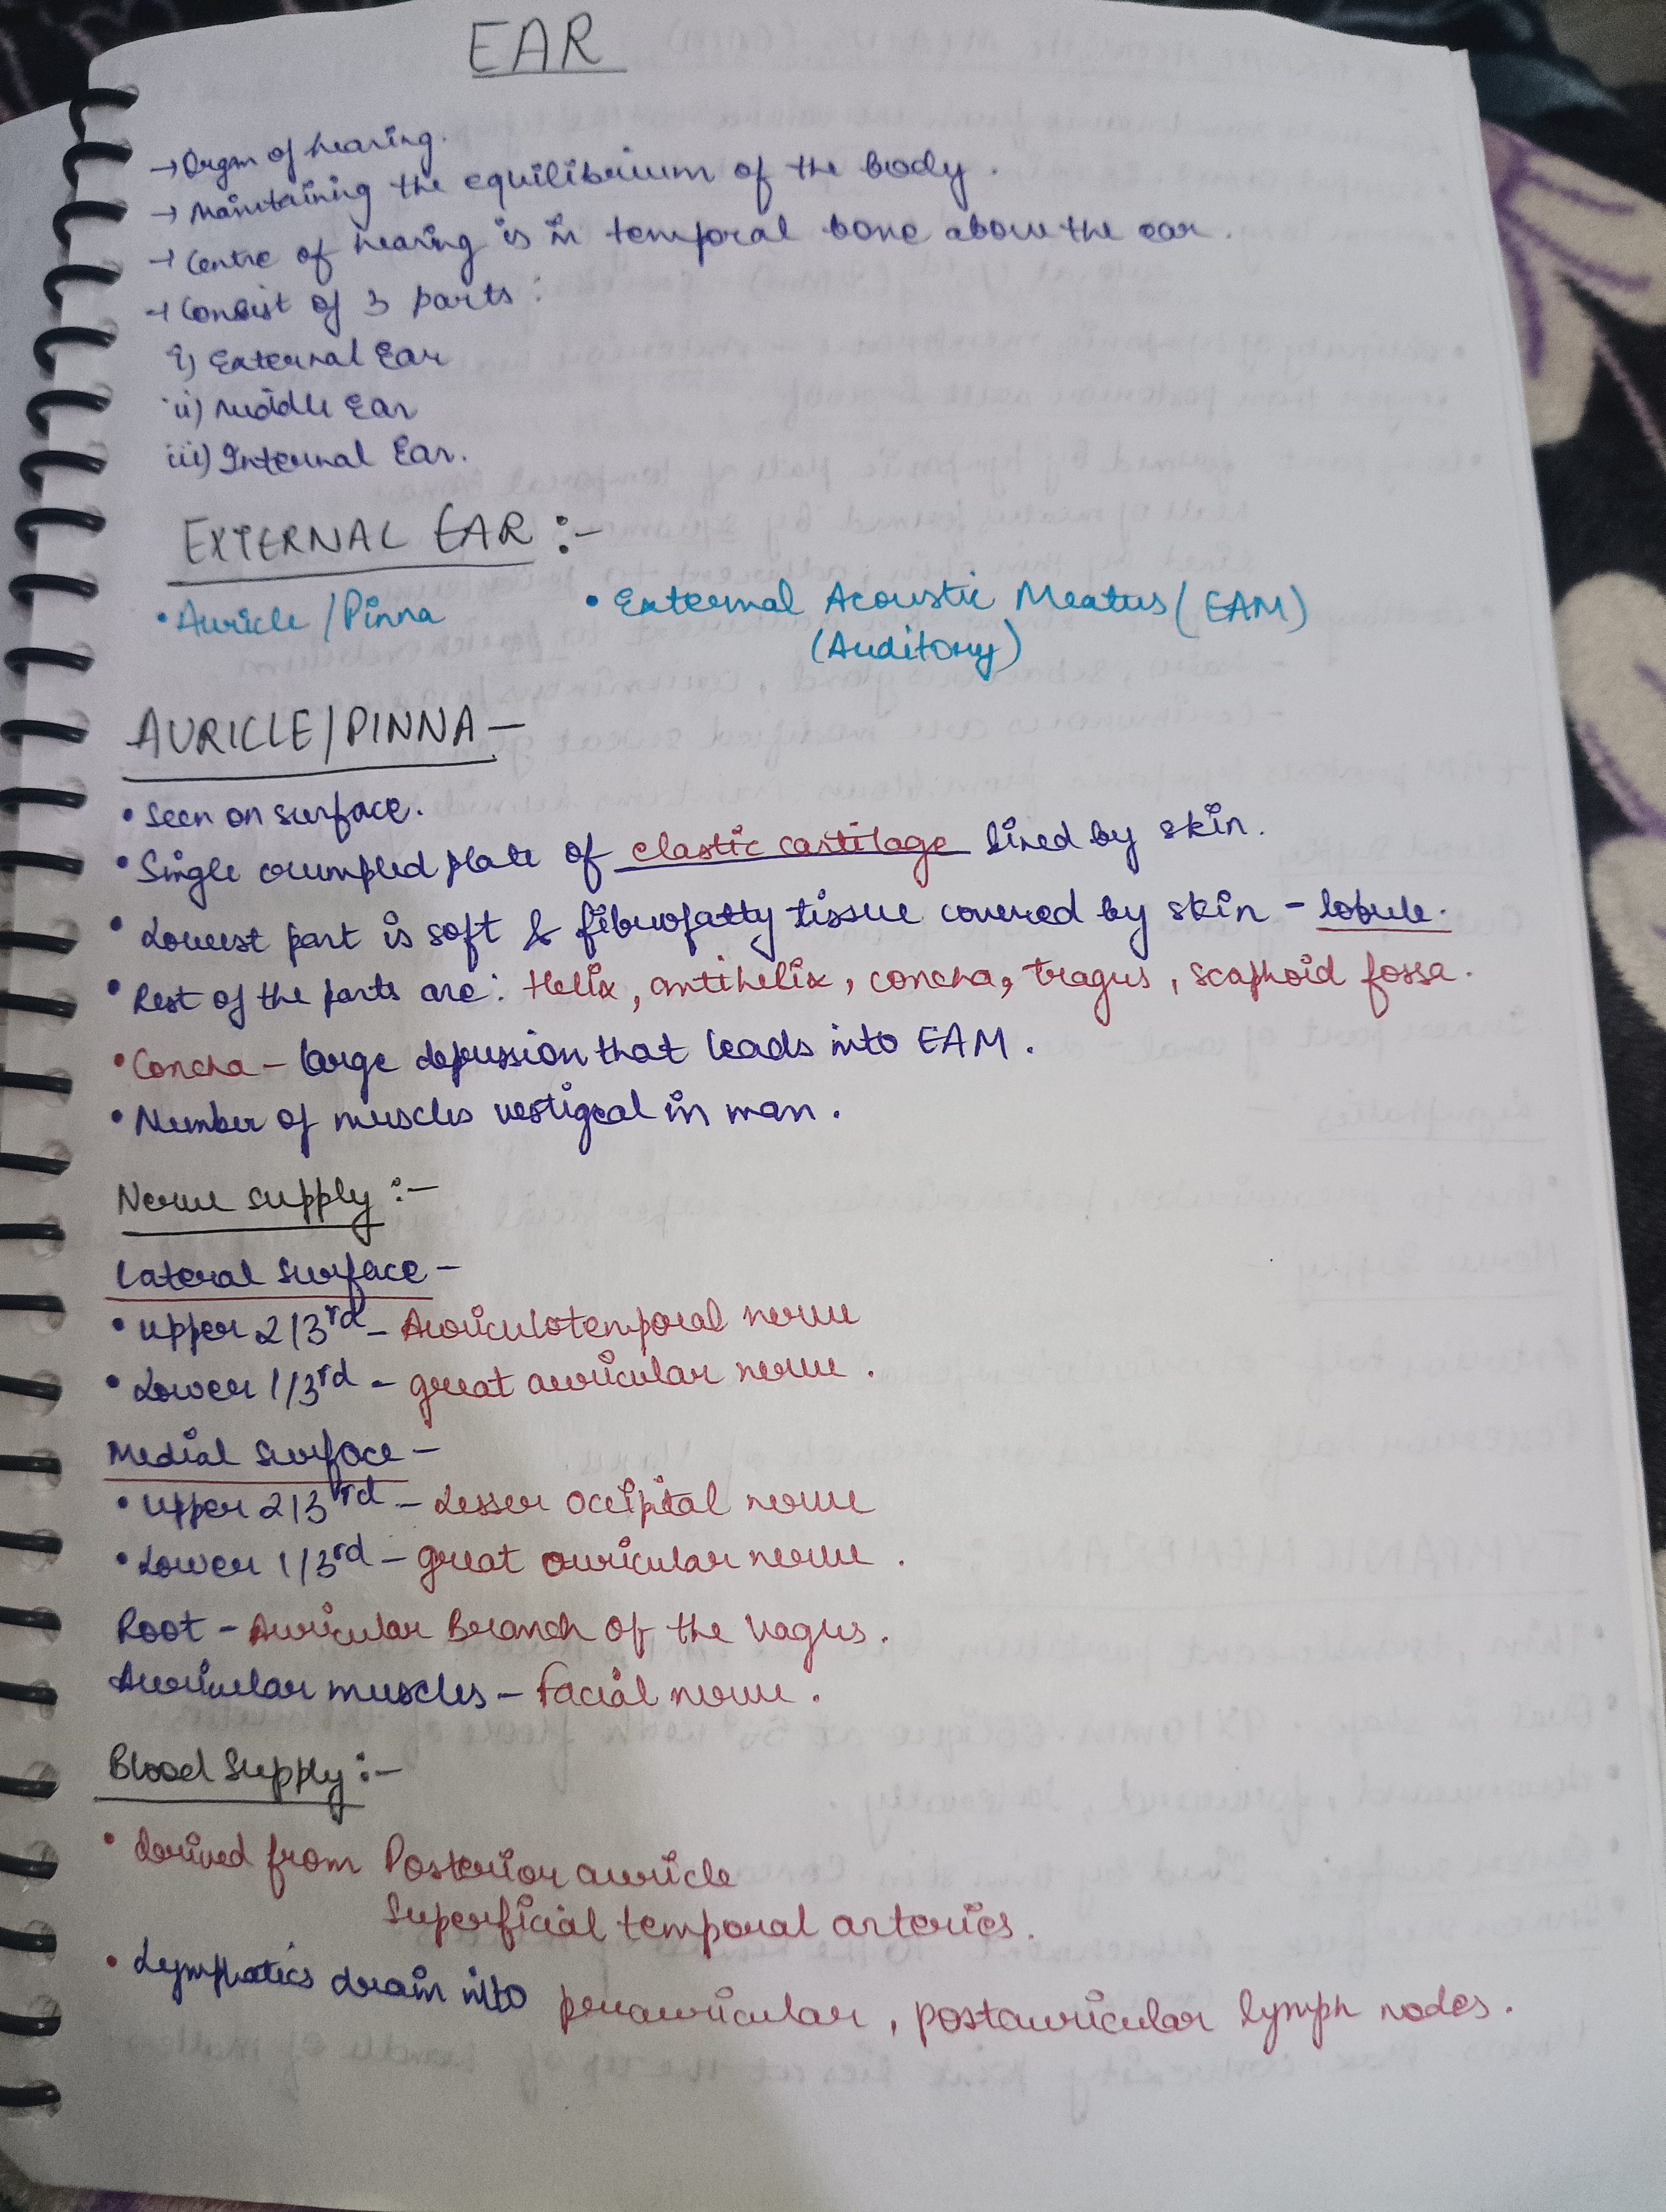 EAR
→ Organ of hearing.
→ Maintaining the equilibrium of the body.
→ Centre of hearing is in temporal bone above the ear.
→ Consist of 3 parts:
i) External Ear
ii) Middle Ear
iii) Internal Ear.
EXTERNAL EAR :-
• Auricle / Pinna • External Acoustic Meatus (EAM)
(Auditory)
AURICLE/PINNA –
• Seen on surface.
• Single crumpled plate of elastic cartilage lined by skin.
• Lowest part is soft & fibrofatty tissue covered by skin – lobule.
• Rest of the parts are: Helix, antihelix, concha, tragus, scaphoid fossa.
• Concha – large depression that leads into EAM.
• Number of muscles vestigeal in man.
Nerve supply :-
Lateral Surface –
• Upper 2/3rd – Auriculotemporal nerve
• Lower 1/3rd – great auricular nerve.
Medial Surface –
• Upper 2/3rd – Lesser occipital nerve
• Lower 1/3rd – great auricular nerve.
Root – Auricular Branch of the vagus.
Auricular muscles – facial nerve.
Blood Supply :-
• Derived from Posterior auricle
Superficial temporal arteries.
• Lymphatics drain into preauricular, postauricular lymph nodes.